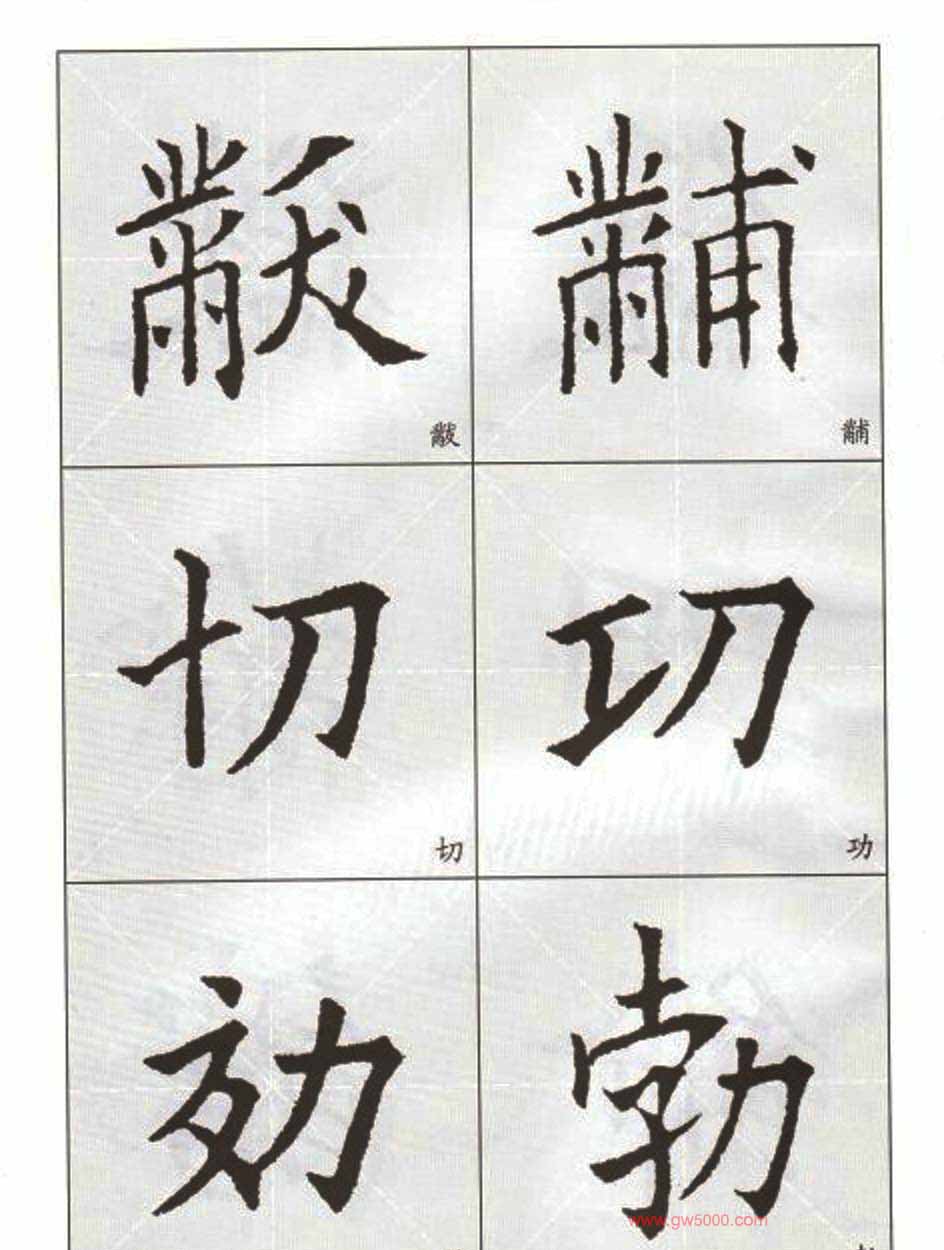 黻 黼
黻 黼
切 功
切 功
劾 勃
www.gw5000.com